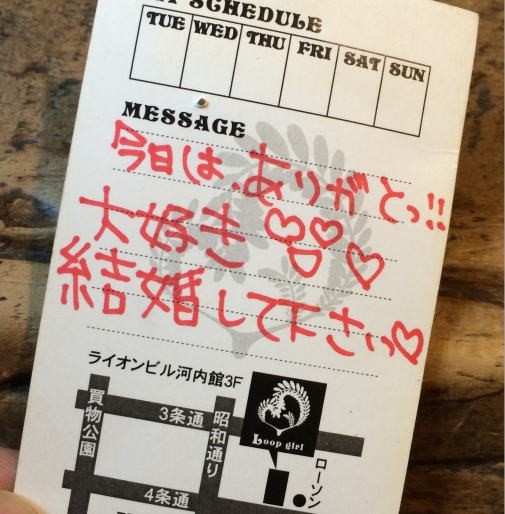 SCHEDULE
TUE WED THU FRI SAT SUN
MESSAGE
今日は、ありがとっ!!
大好き♡♡♡♡
結婚して下さいっ♡
ライオンビル河内館3F
買物公園
3条通
昭和通り
Loop girl
ローソン
4条通